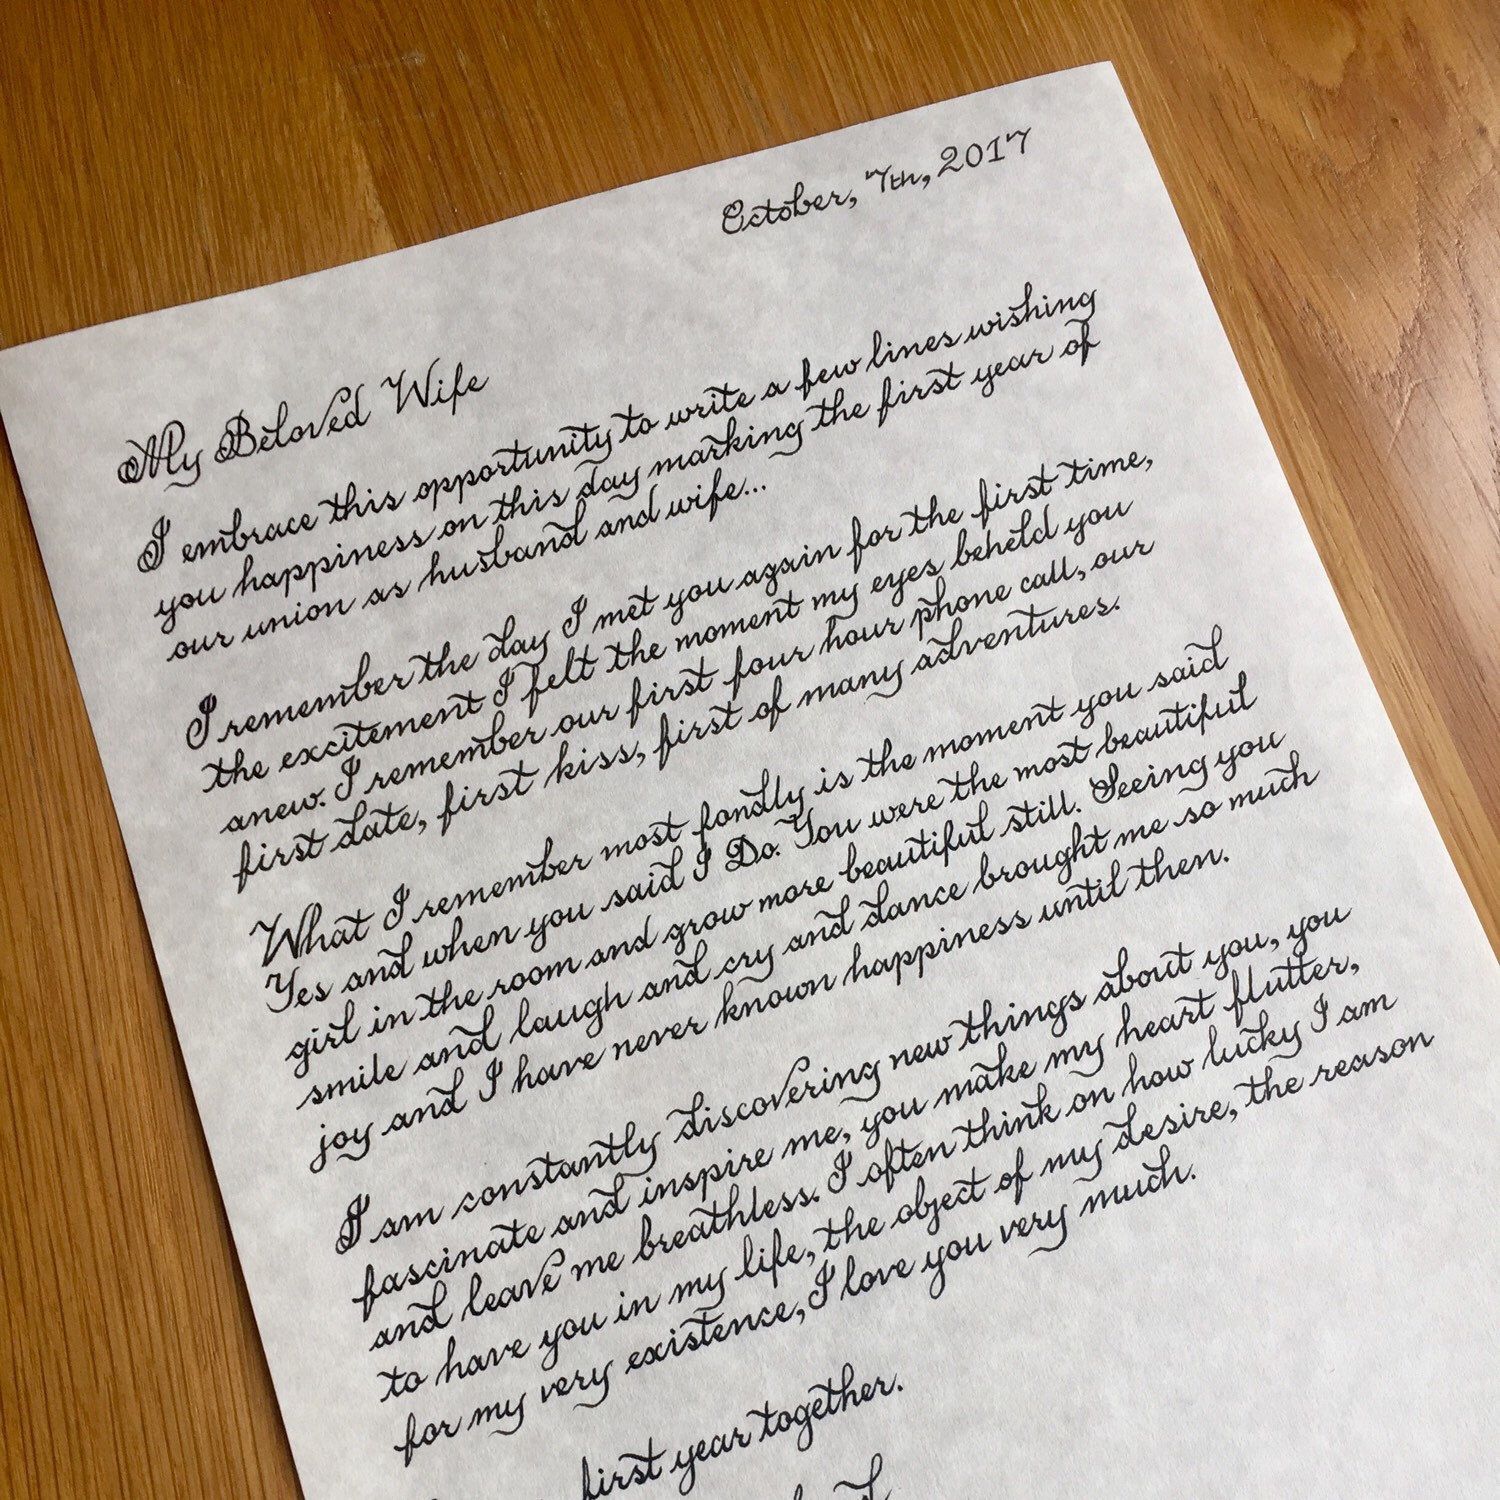 October, 7th, 2017
My Beloved Wife
I embrace this opportunity to write a few lines wishing
you happiness on this day marking the first year of
our union as husband and wife...
I remember the day I met you again for the first time,
the excitement I felt the moment my eyes beheld you
anew. I remember our first four hour phone call, our
first date, first kiss, first of many adventures.
What I remember most fondly is the moment you said
Yes and when you said I Do. You were the most beautiful
girl in the room and grow more beautiful still. Seeing you
smile and laugh and cry and dance brought me so much
joy and I have never known happiness until then.
I am constantly discovering new things about you, you
fascinate and inspire me, you make my heart flutter,
and leave me breathless. I often think on how lucky I am
to have you in my life, the object of my desire, the reason
for my very existence, I love you very much.
first year together.